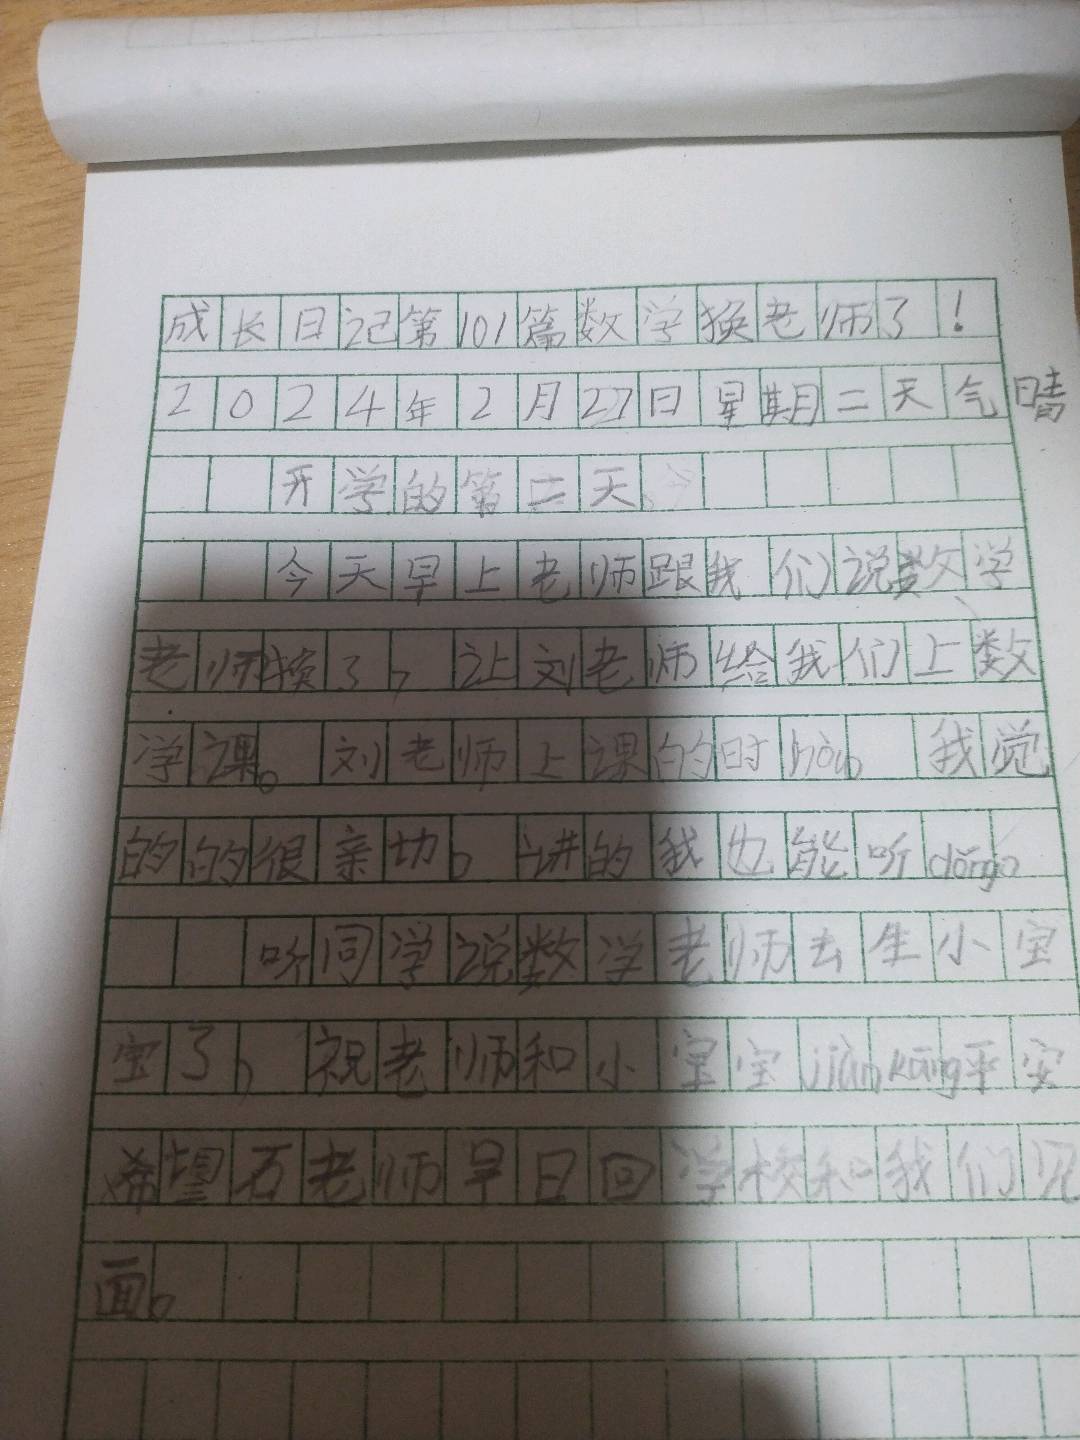 成长日记第101篇数学换老师了!
2024年2月27日星期二天气晴
开学的第二天。今
今天早上老师跟我们说数学
老师换了,让刘老师给我们上数
学课。刘老师上课的时hòu。我觉
的的很亲切。讲的我也能听dǒng。
听同学说数学老师去生小宝
宝了,祝老师和小宝宝jiànkāng平安
希望石老师早日回学校和我们见
面。